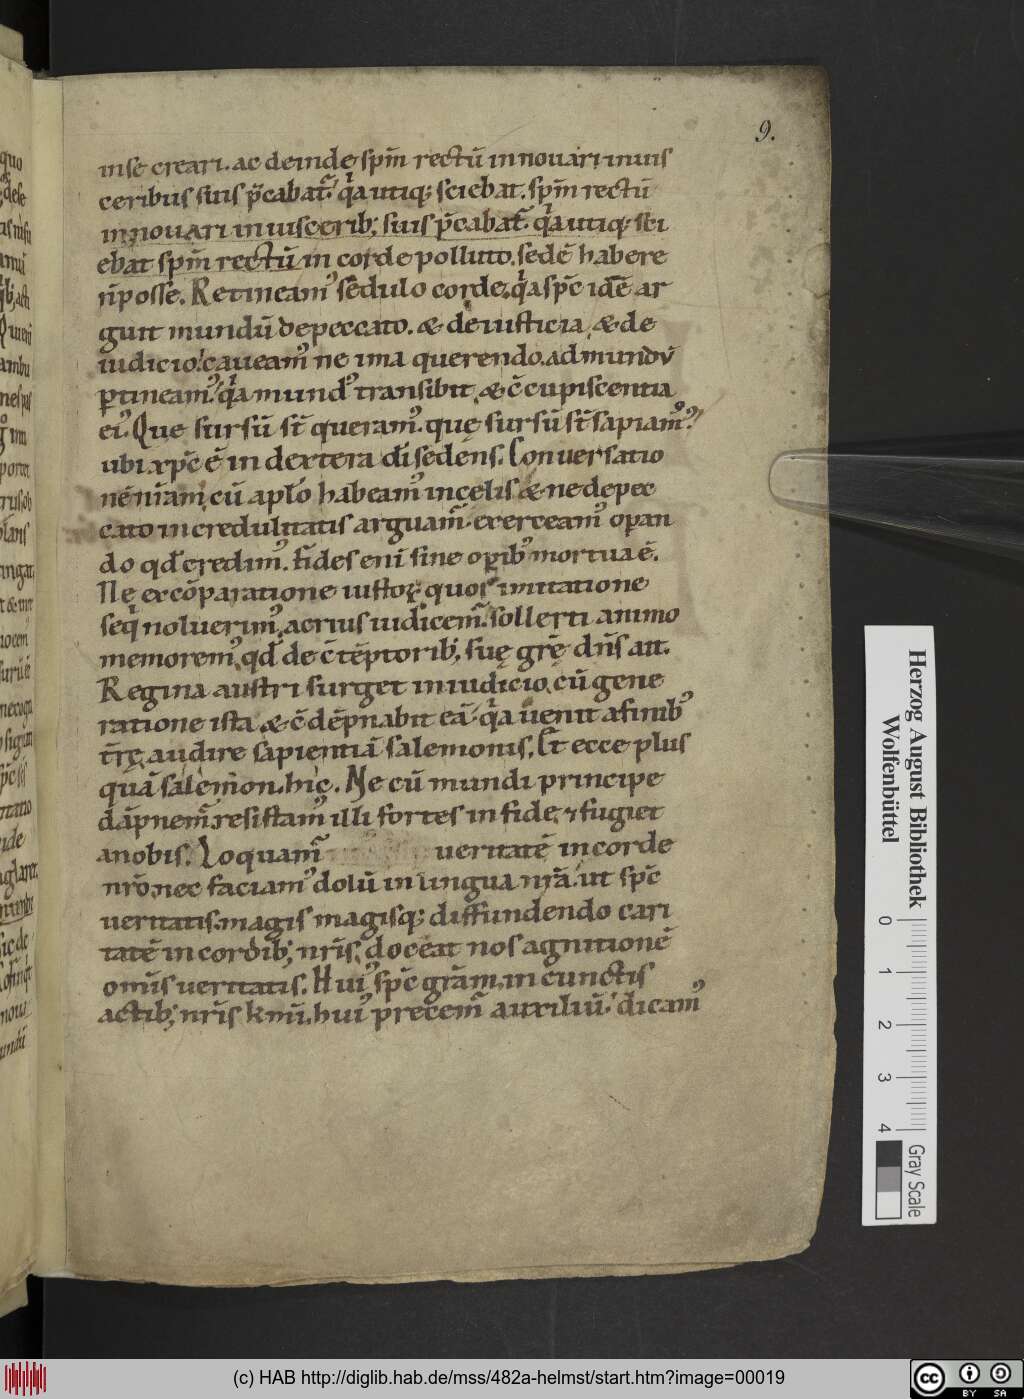 9.
inse creari. ac deinde spm̄ rectū innouari inuis
ceribus suis p̄cabat᷑. q̇a utiq; sciebat. spm̄ rectū
innouari inuiscerib; suis p̄cabat᷑. q̇a utiq; sci
ebat spm̄ rectū in corde polluto. sedē habere
n̄ posse. Retineamꝰ sedulo corde. q̇a sp̄c idē ar
guit mundū depeccato. & deiusticia, & de
iudicio. caueamꝰ ne ima querendo. admundū
ꝑtineamꝰ. q̇a mundꝰ transibit, & c̄cupiscentia
eiꝰ. Que sursū st̄ queramꝰ. quę sursū st̄ sapiamꝰ.
ubi xp̄c ē in dextera dī sedens. Conuersatio
nē nr̄am cū aplo habeamꝰ incelis & nedepec
cato incredulitatis arguam᷑. exerceamꝰ oꝑan
do qd̄ credimꝰ. fides eni sine oꝑibꝰ mortua ē.
Ne excōparatione iustoꝝ quos imitatione
seq̇ noluerimꝰ, acrius iudicem᷑. sollerti animo
memoremꝰ, qd̄ de c̄tēptorib; suę grę̄ dn̄s ait.
Regina austri surget iniudicio. cū gene
ratione ista & c̄dēpnabit eā. q̇a uenit afinibꝰ
t̄rę, audire sapientiā salemonis. Et ecce plus
quā salemon. hic. Ne cū mundi principe
dāpnem᷑. resistamꝰ illi fortes in fide, ⁊ fugiet
anobis. Loquam᷑ ueritatē in corde
nr̄o. nec faciamꝰ dolū in lingua nr̄a. ut sp̄c
ueritatis. magis magisq; diffundendo cari
tatē in cordib; nr̄is, doceat nos agnitionē
om̄is ueritatis. Huiꝰ sp̄c grām, in cunctis
actib; nr̄is km̄i. huiꝰ precem᷑ auxiliū. dicamꝰ
Herzog August Bibliothek
Wolfenbüttel
0 1 2 3 4
Gray Scale
(c) HAB http://diglib.hab.de/mss/482a-helmst/start.htm?image=00019
cc BY SA